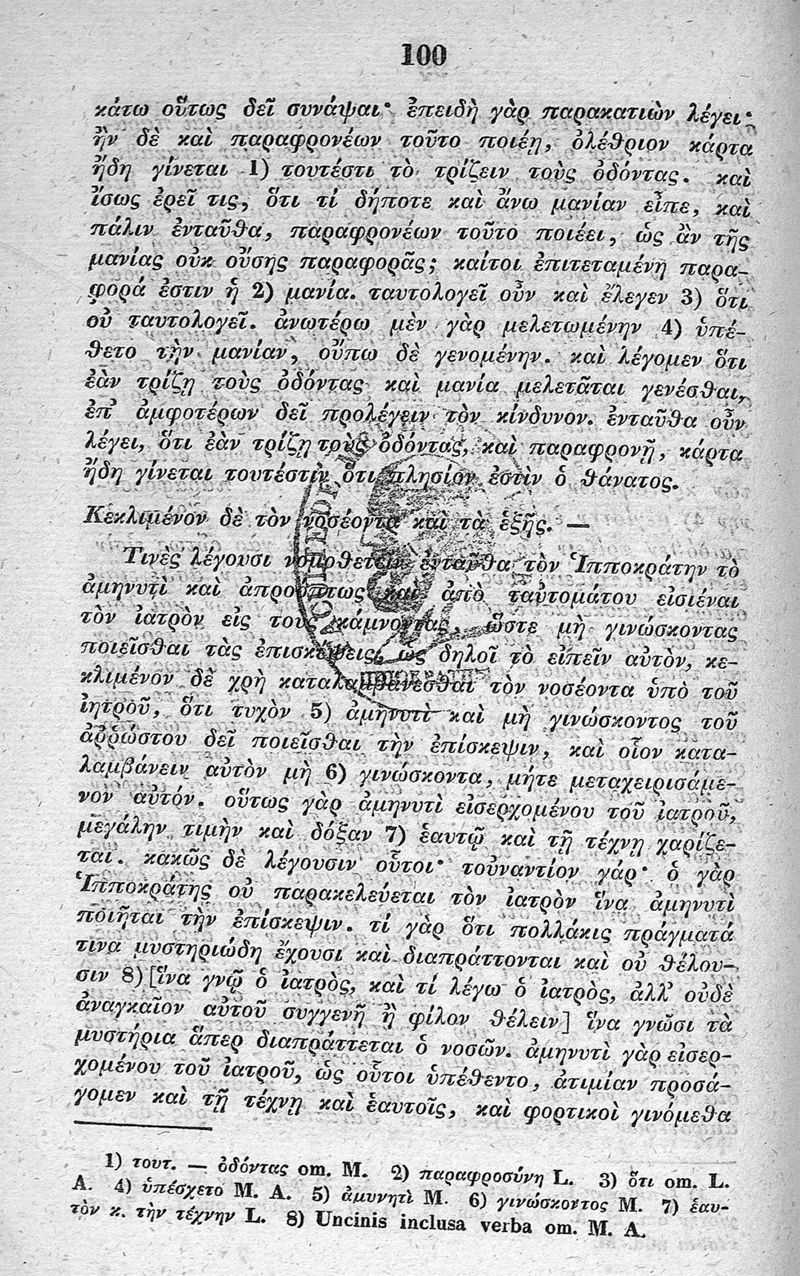 100
κάτω οὕτως δεῖ συνάψαι· ἐπειδὴ γὰρ παρακατιὼν λέγει·
ἢν δὲ καὶ παραφρονέων τοῦτο ποιέῃ, ὀλέθριον κάρτα
ἤδη γίνεται 1) τουτέστι τὸ τρίζειν τοὺς ὀδόντας. καὶ
ἴσως ἐρεῖ τις, ὅτι τί δήποτε καὶ ἄνω μανίαν εἶπε, καὶ
πάλιν ἐνταῦθα, παραφρονέων τοῦτο ποιέει, ὡς ἂν τῆς
μανίας οὐκ οὔσης παραφορᾶς; καίτοι ἐπιτεταμένη παρα-
φορά ἐστιν ἡ 2) μανία. ταυτολογεῖ οὖν καὶ ἔλεγεν 3) ὅτι
οὐ ταυτολογεῖ. ἀνωτέρω μὲν γὰρ μελετωμένην 4) ὑπέ-
θετο τὴν μανίαν, οὔπω δὲ γενομένην. καὶ λέγομεν ὅτι
ἐὰν τρίζῃ τοὺς ὀδόντας καὶ μανία μελετᾶται γενέσθαι,
ἐπ' ἀμφοτέρων δεῖ προλέγειν τὸν κίνδυνον. ἐνταῦθα οὖν
λέγει, ὅτι ἐὰν τρίζῃ τοὺς ὀδόντας, καὶ παραφρονῇ, κάρτα
ἤδη γίνεται τουτέστιν ὅτι πλησίον ἐστὶν ὁ θάνατος.
Κεκλιμένον δὲ τὸν νοσέοντα καὶ τὰ ἑξῆς. —
Τινὲς λέγουσι νομοθετεῖν ἐνταῦθα τὸν Ἱπποκράτην τὸ
ἀμηνυτὶ καὶ ἀπροόπτως καὶ ἀπὸ ταὐτομάτου εἰσιέναι
τὸν ἰατρὸν εἰς τοὺς κάμνοντας, ὥστε μὴ γινώσκοντας
ποιεῖσθαι τὰς ἐπισκέψεις, ὡς δηλοῖ τὸ εἰπεῖν αὐτὸν, κε-
κλιμένον δὲ χρὴ καταλαμβάνεσθαι τὸν νοσέοντα ὑπὸ τοῦ
ἰητροῦ, ὅτι τυχὸν 5) ἀμηνυτὶ καὶ μὴ γινώσκοντος τοῦ
ἀῤῥώστου δεῖ ποιεῖσθαι τὴν ἐπίσκεψιν, καὶ οἷον κατα-
λαμβάνειν αὐτὸν μὴ 6) γινώσκοντα, μήτε μεταχειρισάμε-
νον αὐτόν. οὕτως γὰρ ἀμηνυτὶ εἰσερχομένου τοῦ ἰατροῦ,
μεγάλην τιμὴν καὶ δόξαν 7) ἑαυτῷ καὶ τῇ τέχνῃ χαρίζε-
ται. κακῶς δὲ λέγουσιν οὗτοι· τοὐναντίον γάρ· ὁ γὰρ
Ἱπποκράτης οὐ παρακελεύεται τὸν ἰατρὸν ἵνα ἀμηνυτὶ
ποιῆται τὴν ἐπίσκεψιν. τί γὰρ ὅτι πολλάκις πράγματά
τινα μυστηριώδη ἔχουσι καὶ διαπράττονται καὶ οὐ θέλου-
σιν 8) [ἵνα γνῷ ὁ ἰατρὸς, καὶ τί λέγω ὁ ἰατρὸς, ἀλλ' οὐδὲ
ἀναγκαῖον αὐτοῦ συγγενῆ ἢ φίλον θέλειν] ἵνα γνῶσι τὰ
μυστήρια ἅπερ διαπράττεται ὁ νοσῶν. ἀμηνυτὶ γὰρ εἰσερ-
χομένου τοῦ ἰατροῦ, ὡς οὗτοι ὑπέθεντο, ἀτιμίαν προσά-
γομεν καὶ τῇ τέχνῃ καὶ ἑαυτοῖς, καὶ φορτικοὶ γινόμεθα
1) τουτ. — ὀδόντας om. M. 2) παραφροσύνη L. 3) ὅτι om. L.
A. 4) ὑπέσχετο M. A. 5) ἀμυνητὶ M. 6) γινώσκοντος M. 7) ἑαυ-
τὸν κ. τὴν τέχνην L. 8) Uncinis inclusa verba om. M. A.